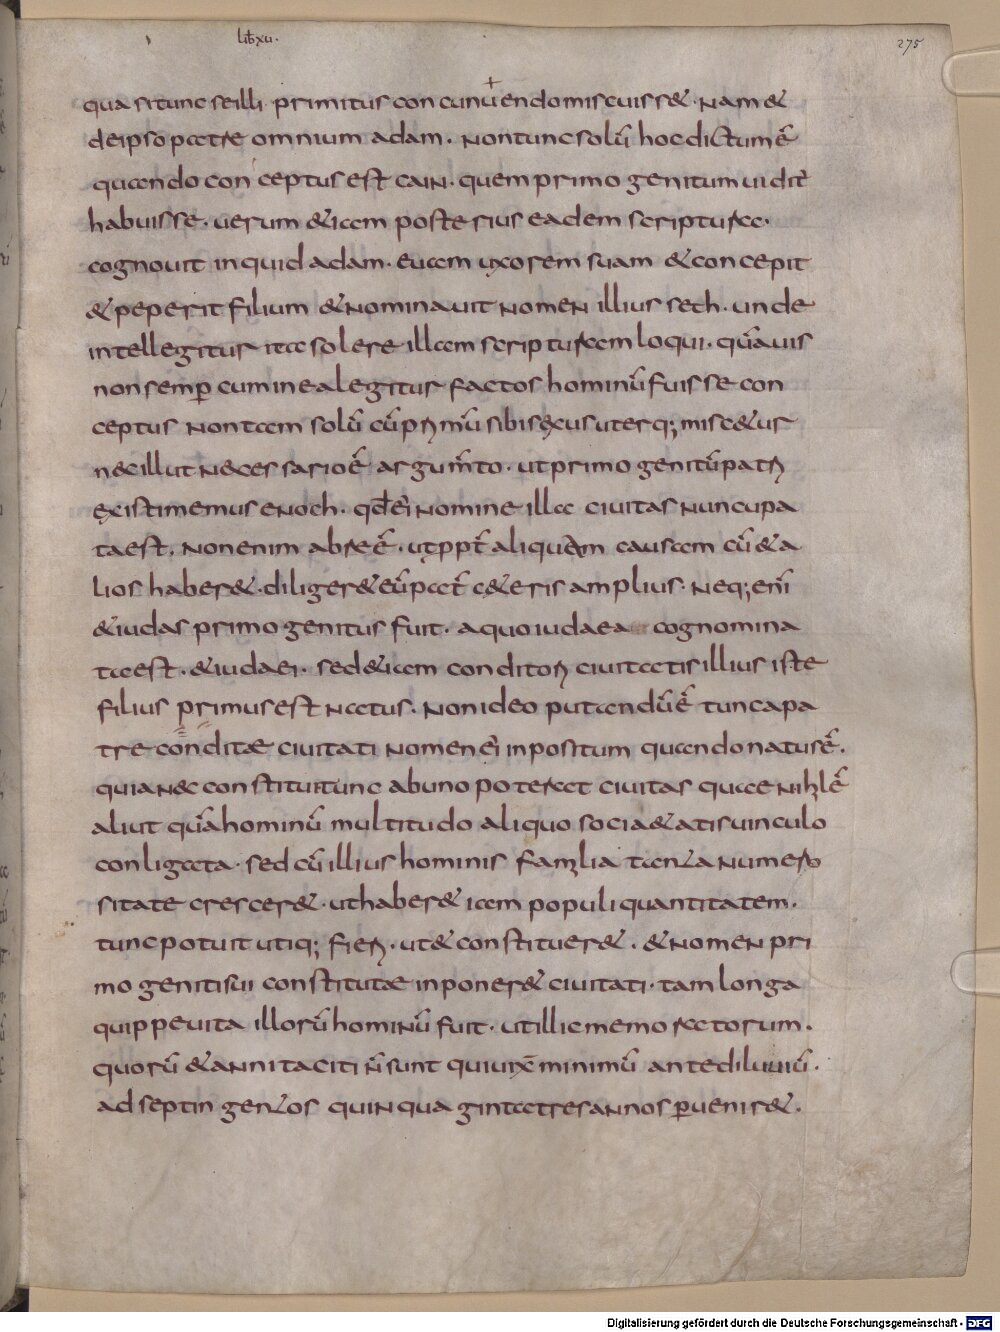 lib xu.
275
qua si tunc se illi · primitus con cunuendo miscuisset · Nam &
de ipso patre omnium adam · Non tunc solū hoc dictum ē
quando con ceptus est cain · quem primo genitum uidet̄
habuisse · uerum & iam posterius eadem scriptura ·
cognouit inquid adam · euam uxorem suam & concepit
& peperit filium & nominauit nomen illius seth · unde
intellegitur ita solere illam scripturam loqui · quāuis
non semp̄ cum in ea legitur factos hominū fuisse con
ceptus non tam solū cū primū sibi sexus uterq; miscetur
nec illut necessario ē argum̄to · ut primo genitū patri
existimemus enoch · qd ei nomine illa ciuitas nuncupa
ta est · Non enim ab re ē · ut ppt̄ aliquam causam cū & a
lios haberet · diligeret eū pat̄ ceteris amplius · Neq; eni
& iudas primo genitus fuit · a quo iudaea cognomina
ta est · & iudaei · sed & iam conditori ciuitatis illius iste
filius primus est natus · Non ideo putandū ē tunc a pa
tre conditae ciuitati nomen ei inpositum quando natus ē ·
quia nec constitui tunc ab uno poterat ciuitas quae nihil ē
aliut quā hominū multitudo aliquo societatis uinculo
conligata · sed cū illius hominis familia tanta numero
sitate cresceret · ut haberet iam populi quantitatem ·
tunc potuit utiq; fieri · ut & constitueret · & nomen pri
mo geniti sui constitutae inponeret ciuitati · tam longa
quippe uita illorū hominū fuit · ut illic memoratorum ·
quorū & anni taciti n̄ sunt qui uix̄ minimū ante diluuiū ·
ad septingentos quinquaginta tres annos p̄ueniret ·
Digitalisierung gefördert durch die Deutsche Forschungsgemeinschaft - DFG